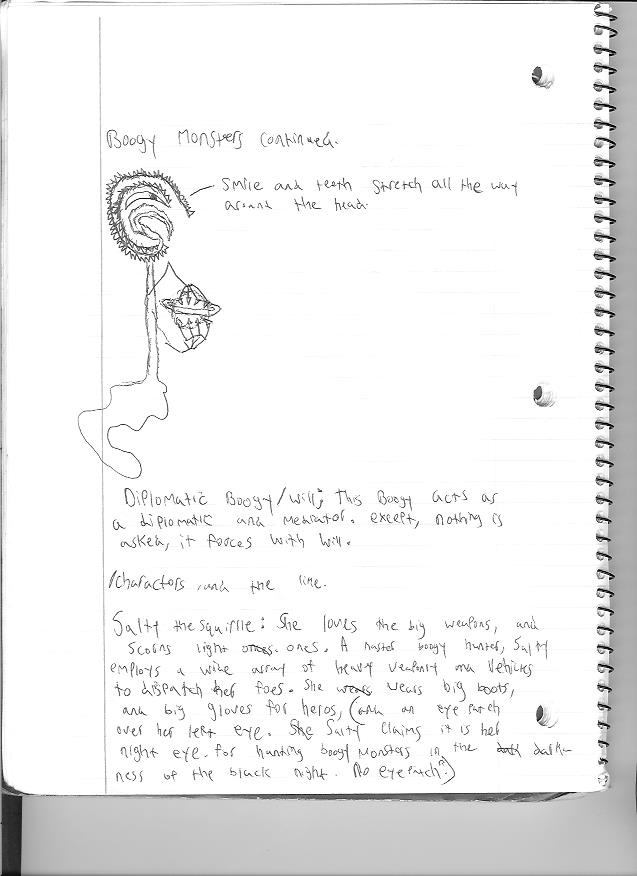 Boogy Monsters continued.
Smile and teeth stretch all the way
around the head.
Diplomatic Boogy/Will; This Boogy acts as
a diplomatic and mediator. except, nothing is
asked, it forces with will.
/Charactors and the like.
Salty the squiffle: She loves the big weapons, and
scorns light ones. A master boogy hunter, Salty
employs a wide array of heavy weaponry and Vehicles
to dispatch her foes. She wears big boots,
and big gloves for heros, (and an eye patch
over her left eye. She Salty Claims it is her
night eye. for hunting boogy Monsters in the dark dark-
ness of the black night. No eyepatch?)